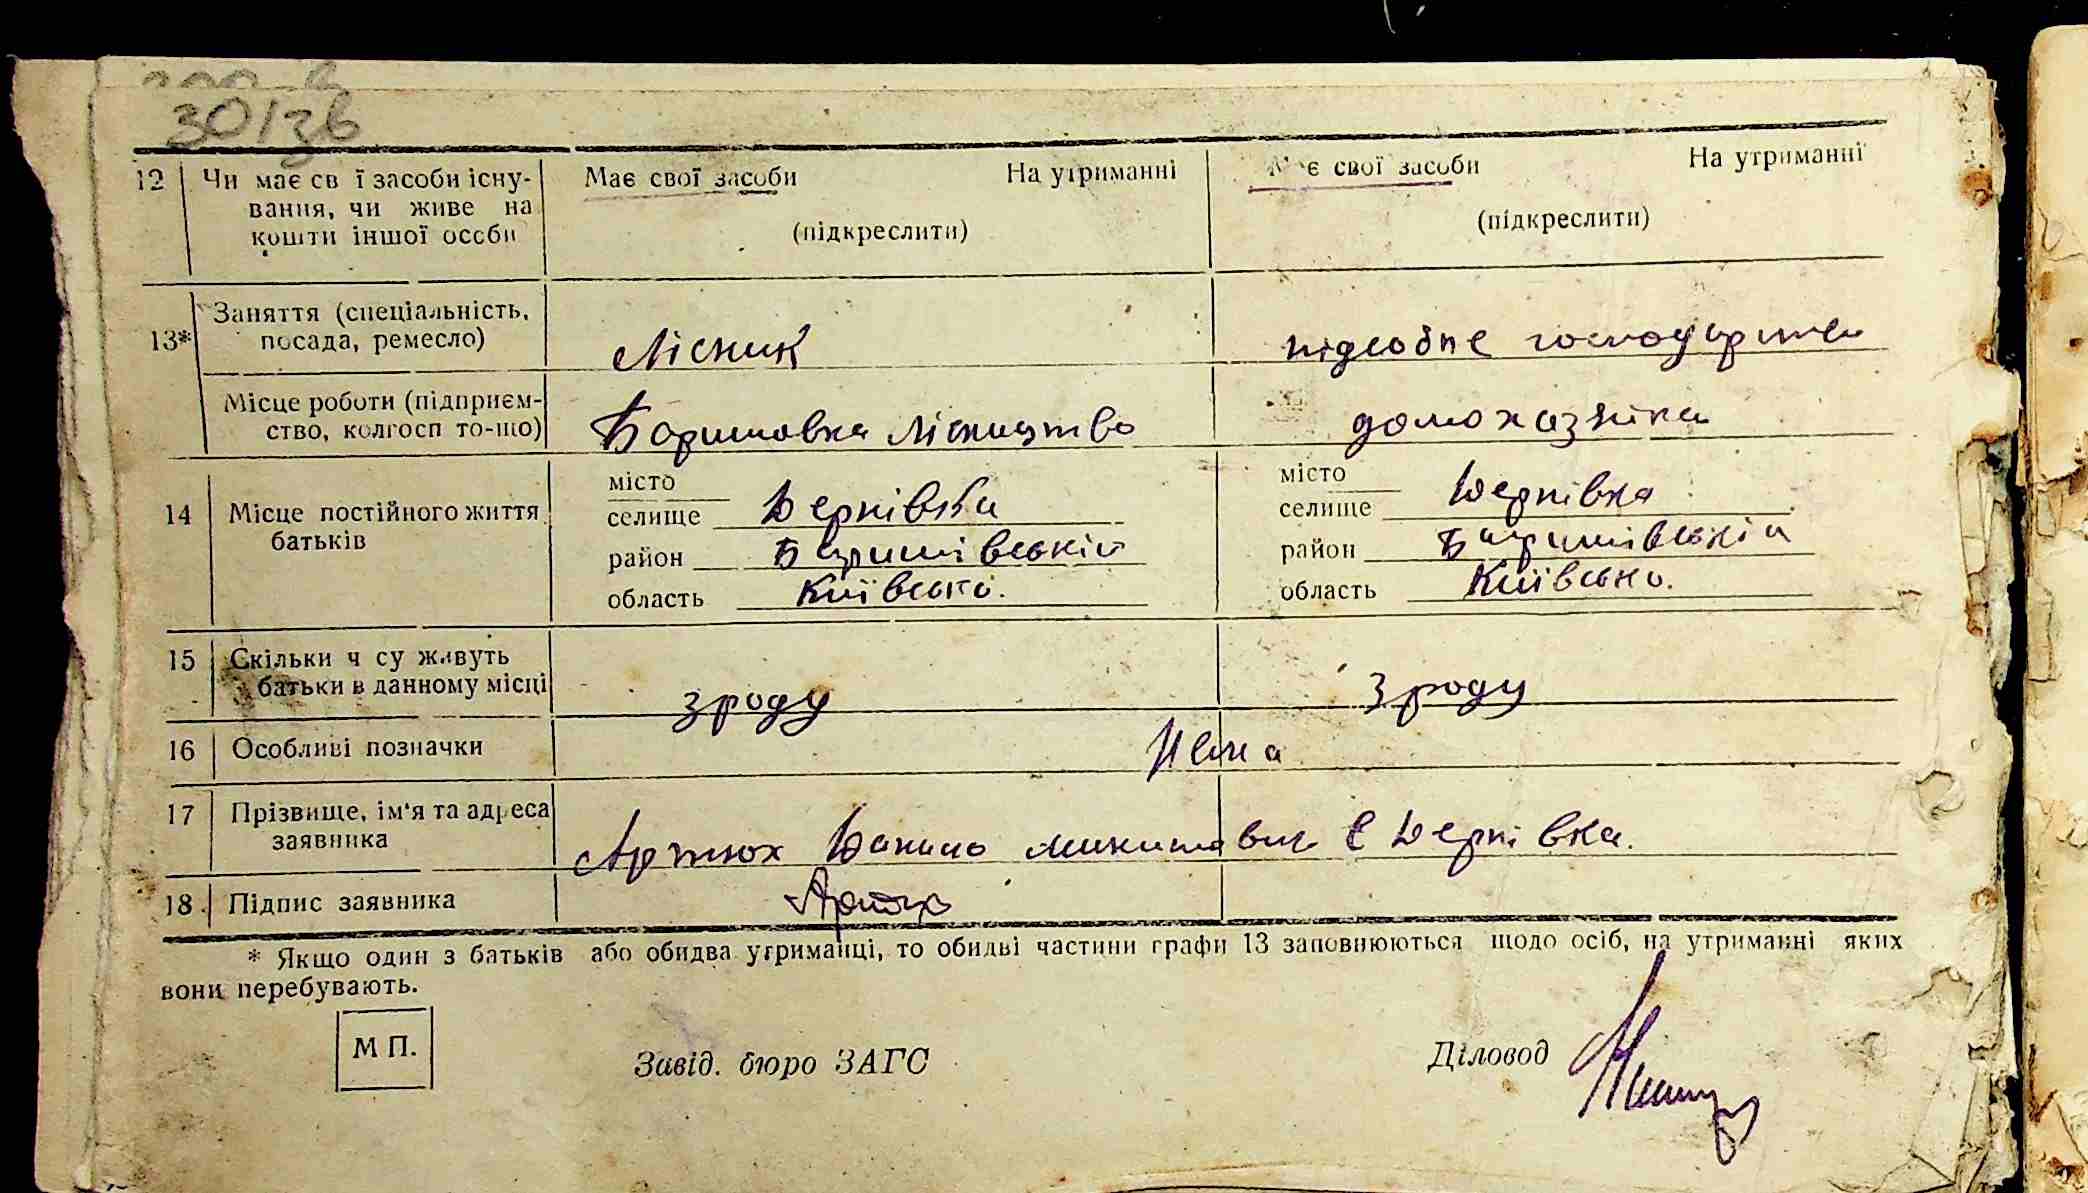 30/зв
12 Чи має св ї засоби існу- Має свої засоби На утриманні Має свої засоби На утриманні
вання, чи живе на (підкреслити) (підкреслити)
кошти іншої особи
13* Заняття (спеціальність,
посада, ремесло) Лісник підсобне
Місце роботи (підприєм-
ство, колгосп то-що) Баришовка лісництво домохазяїка
місто місто
14 Місце постійного життя селище Дернівка селище Дернівка
батьків район Баришівській район Баришівській
область Київсько. область Київсько.
15 Скільки ч су живуть
батьки в данному місці з роду з роду
16 Особливі позначки Нема
17 Прізвище, ім'я та адреса
заявника Артюх Данило Микитович С Дернівка.
18 Підпис заявника Артюх
* Якщо один з батьків або обидва утриманці, то обидві частини графи 13 заповнюються щодо осіб, на утриманні яких
вони перебувають.
М П.
Завід. бюро ЗАГС Діловод